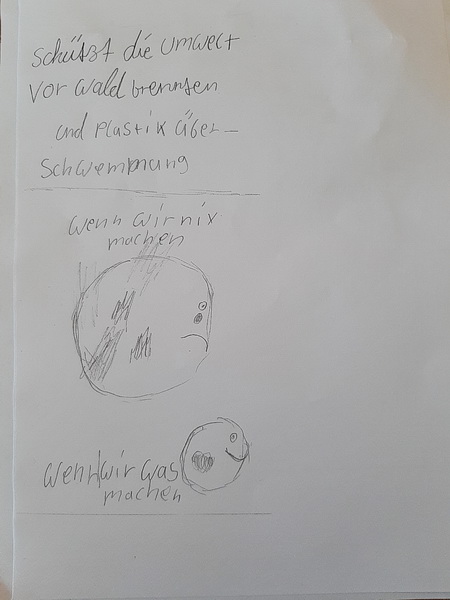 schützt die Umwelt
vor Wald brennten
und Plastik über-
schwemmung
Wenn wir nix
machen
Wenn wir was
machen